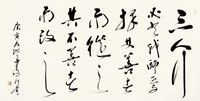 三人行
必有我師焉
擇其善者
而從之
其不善者
而改之